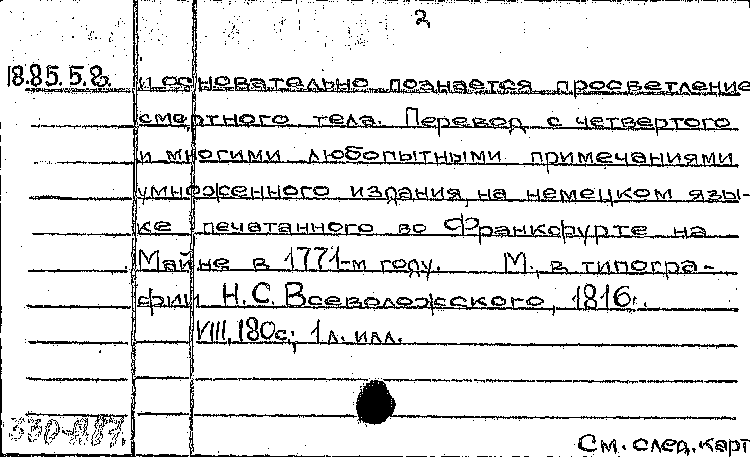 2
18.85.5.8. и основательно познается просветление
смертного тела. Перевод с четвертого
и многими любопытными примечаниями
умноженного издания, на немецком язы-
ке печатанного во Франкфурте на
Майне в 1771-м году. М., в типогра-
фии Н.С. Всеволожского, 1816г.
VIII, 180с.; 1 л. илл.
См. след. карт